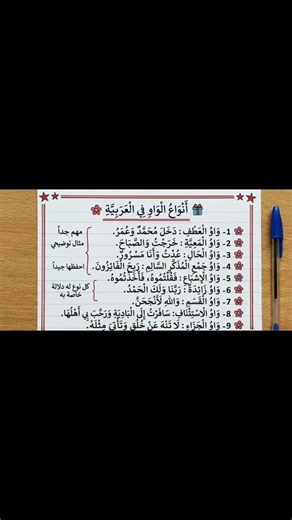 أَنْوَاعُ الْوَاوِ فِي الْعَرَبِيَّةِ
1- وَاوُ الْعَطْفِ : دَخَلَ مُحَمَّدٌ وَعُمَرُ.
2- وَاوُ الْمَعِيَّةِ : خَرَجْتُ وَالصَّبَاحَ.
3- وَاوُ الْحَالِ : عُدْتُ وَأَنَا مَسْرُورٌ.
4- وَاوُ جَمْعِ الْمُذَكَّرِ السَّالِمِ : رَبِحَ الْفَائِزُونَ.
5- وَاوُ الْإِشْبَاعِ : فَقَتَلْتُمُوهُ، فَأَخَذْتُمُوهُ.
6- وَاوُ زَائِدَةٌ : رَبَّنَا وَلَكَ الْحَمْدُ.
7- وَاوُ الْقَسَمِ : وَاللهِ لَأَنْجَحَنَّ.
8- وَاوُ الْاِسْتِئْنَافِ: سَافَرْتُ إِلَى الْبَادِيَةِ وَرَحَّبَ بِي أَهْلُهَا.
9- وَاوُ الْجَزَاءِ: لَا تَنْهَ عَنْ خُلُقٍ وَتَأْتِيَ مِثْلَهُ.
مهم جداً
مثال توضيحي
احفظها جيداً
كل نوع له دلالة
خاصة به